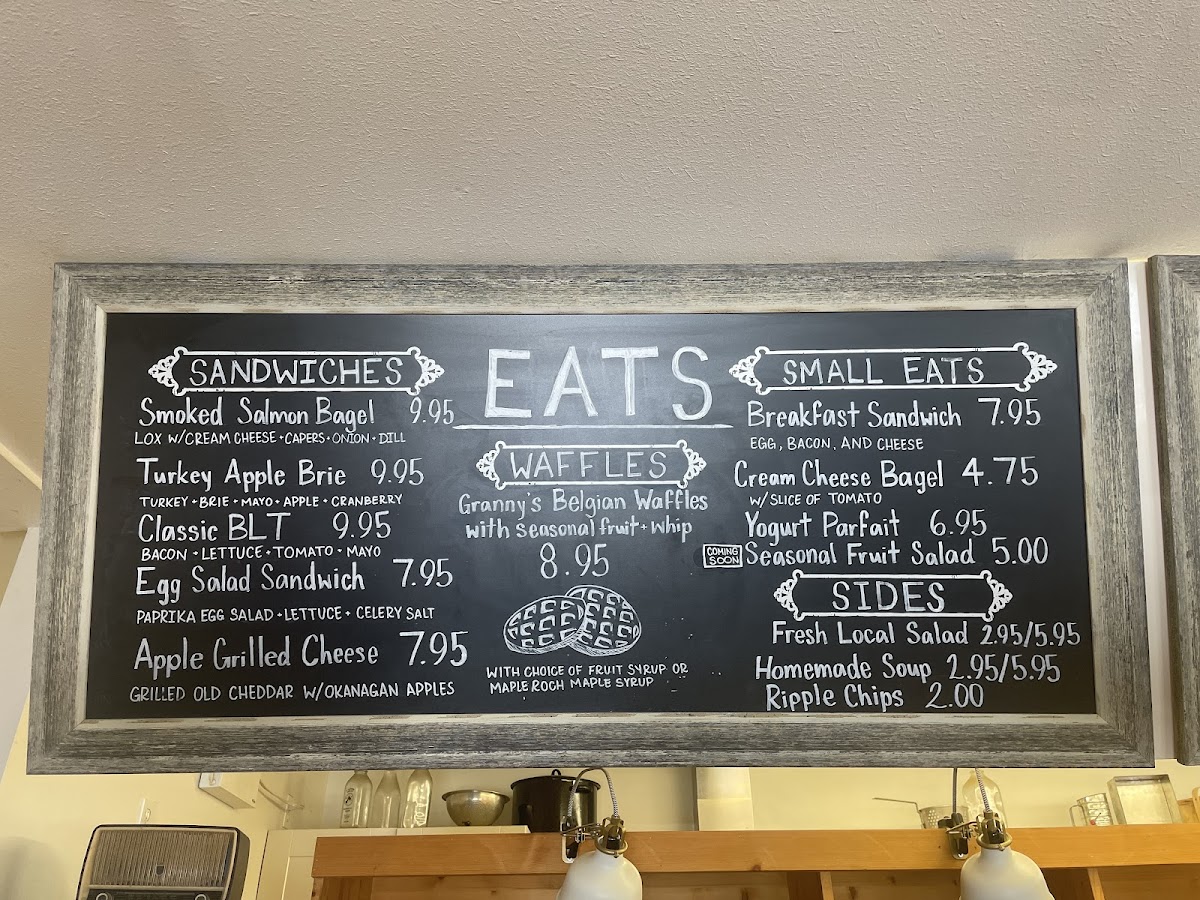 EATS
SANDWICHES
Smoked Salmon Bagel 9.95
LOX W/CREAM CHEESE • CAPERS • ONION • DILL
Turkey Apple Brie 9.95
TURKEY • BRIE • MAYO • APPLE • CRANBERRY
Classic BLT 9.95
BACON • LETTUCE • TOMATO • MAYO
Egg Salad Sandwich 7.95
PAPRIKA EGG SALAD • LETTUCE • CELERY SALT
Apple Grilled Cheese 7.95
GRILLED OLD CHEDDAR W/OKANAGAN APPLES
WAFFLES
Granny's Belgian Waffles
with seasonal fruit + whip
8.95
WITH CHOICE OF FRUIT SYRUP OR
MAPLE ROCH MAPLE SYRUP
SMALL EATS
Breakfast Sandwich 7.95
EGG, BACON, AND CHEESE
Cream Cheese Bagel 4.75
W/SLICE OF TOMATO
Yogurt Parfait 6.95
COMING SOON Seasonal Fruit Salad 5.00
SIDES
Fresh Local Salad 2.95/5.95
Homemade Soup 2.95/5.95
Ripple Chips 2.00